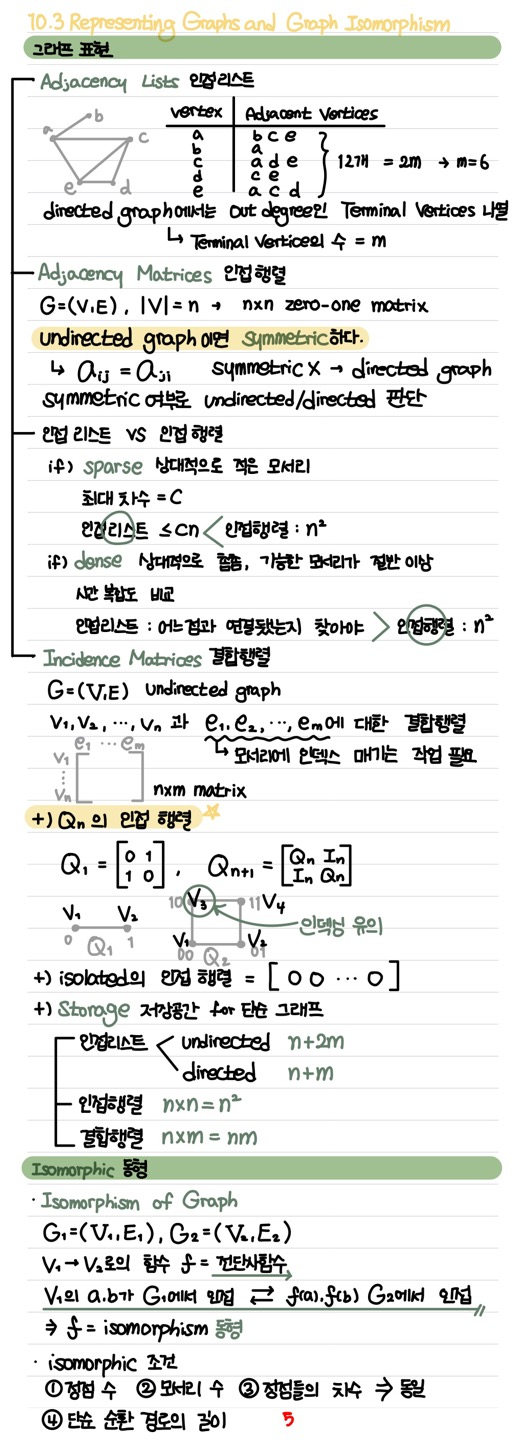 10.3 Representing Graphs and Graph Isomorphism
그래프 표현
Adjacency Lists 인접리스트
a b c d e
vertex Adjacent Vertices
a b c e
b a
c a d e
d c e
e a c d
12개 = 2m → m=6
directed graph에서는 out degree인 Terminal Vertices 나열
↳ Terminal Vertice의 수 = m
Adjacency Matrices 인접행렬
G=(V,E), |V|=n → n×n zero-one matrix
undirected graph이면 symmetric하다.
↳ aij = aji symmetric X → directed graph
symmetric 여부로 undirected/directed 판단
인접 리스트 VS 인접 행렬
if) sparse 상대적으로 적은 모서리
최대 차수 = C
인접리스트 ≤ cn < 인접행렬 : n²
if) dense 상대적으로 촘촘, 가능한 모서리가 절반 이상
시간 복잡도 비교
인접리스트 : 어느점과 연결됐는지 찾아야 > 인접행렬 : n²
Incidence Matrices 결합행렬
G=(V,E) undirected graph
v1, v2, ⋯, vn 과 e1, e2, ⋯, em에 대한 결합행렬
↳ 모서리에 인덱스 매기는 작업 필요
e1 ⋯ em
v1
⋮
vn
n×m matrix
+) Qn의 인접 행렬 ☆
Q1 = [0 1
1 0], Qn+1 = [Qn In
In Qn]
V1 V2
0 Q1 1
10 V3 11 V4
인덱싱 유의
V1 00 Q2 V2 01
+) isolated의 인접 행렬 = [ 0 0 ⋯ 0 ]
+) Storage 저장공간 for 단순 그래프
인접리스트 < undirected n+2m
directed n+m
인접행렬 n×n = n²
결합행렬 n×m = nm
Isomorphic 동형
· Isomorphism of Graph
G1=(V1,E1), G2=(V2,E2)
V1→V2로의 함수 f = 전단사함수
V1의 a.b가 G1에서 인접 ⇄ f(a).f(b) G2에서 인접
⇒ f = isomorphism 동형
· isomorphic 조건
① 정점 수 ② 모서리 수 ③ 정점들의 차수 ⇒ 동일
④ 단순 순환 경로의 길이 5